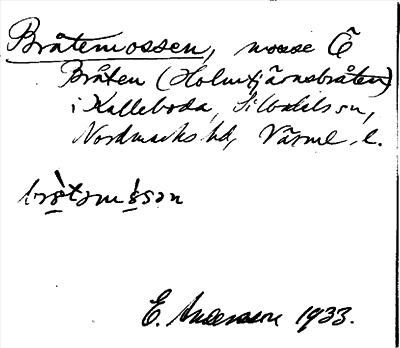 Bråtemossen, mosse Ö
Bråten (Holmtjärnsbråten)
i Kalleboda, Silbodals sn,
Nordmarks hd, Värml. l.
brò̤təmo̤̍sən
E. Andersson 1933.